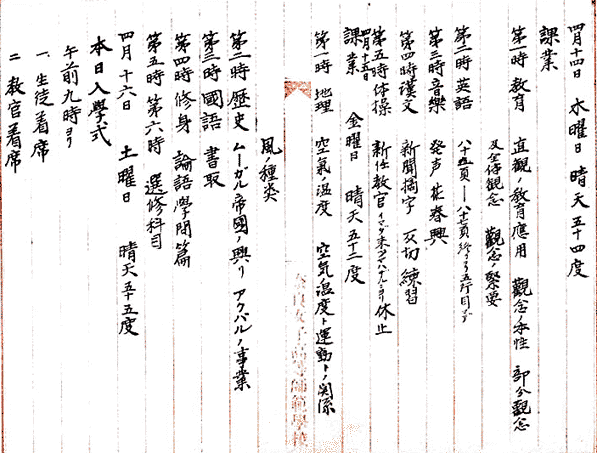 四月十四日 水曜日 晴天五十四度
課業
第一時 教育 直観ノ教育應用 觀念ノ本性 部分觀念
及全体觀念 觀念ノ緊要
第二時 英語 八十五頁――八十七頁終ヨリ五行目マデ
第三時 音樂 發声 花春興
第四時 漢文 新聞摘字 反切練習
第五時 体操 新任教官イマダ来タマハザルヨリ休止
四月十五日 金曜日 晴天五十二度
課業
第一時 地理 空氣ノ温度 空氣ノ温度ト運動トノ関係
風ノ種类
第二時 歴史 ムーガル帝國ノ興リ アクバルノ事業
第三時 國語 書取
第四時 修身 論語学問篇
第五時 第六時 選修科目
四月十六日 土曜日 晴天五十五度
本日入學式
午前九時ヨリ
一、生徒着席
二 教官着席
奈良女子高等師範學校